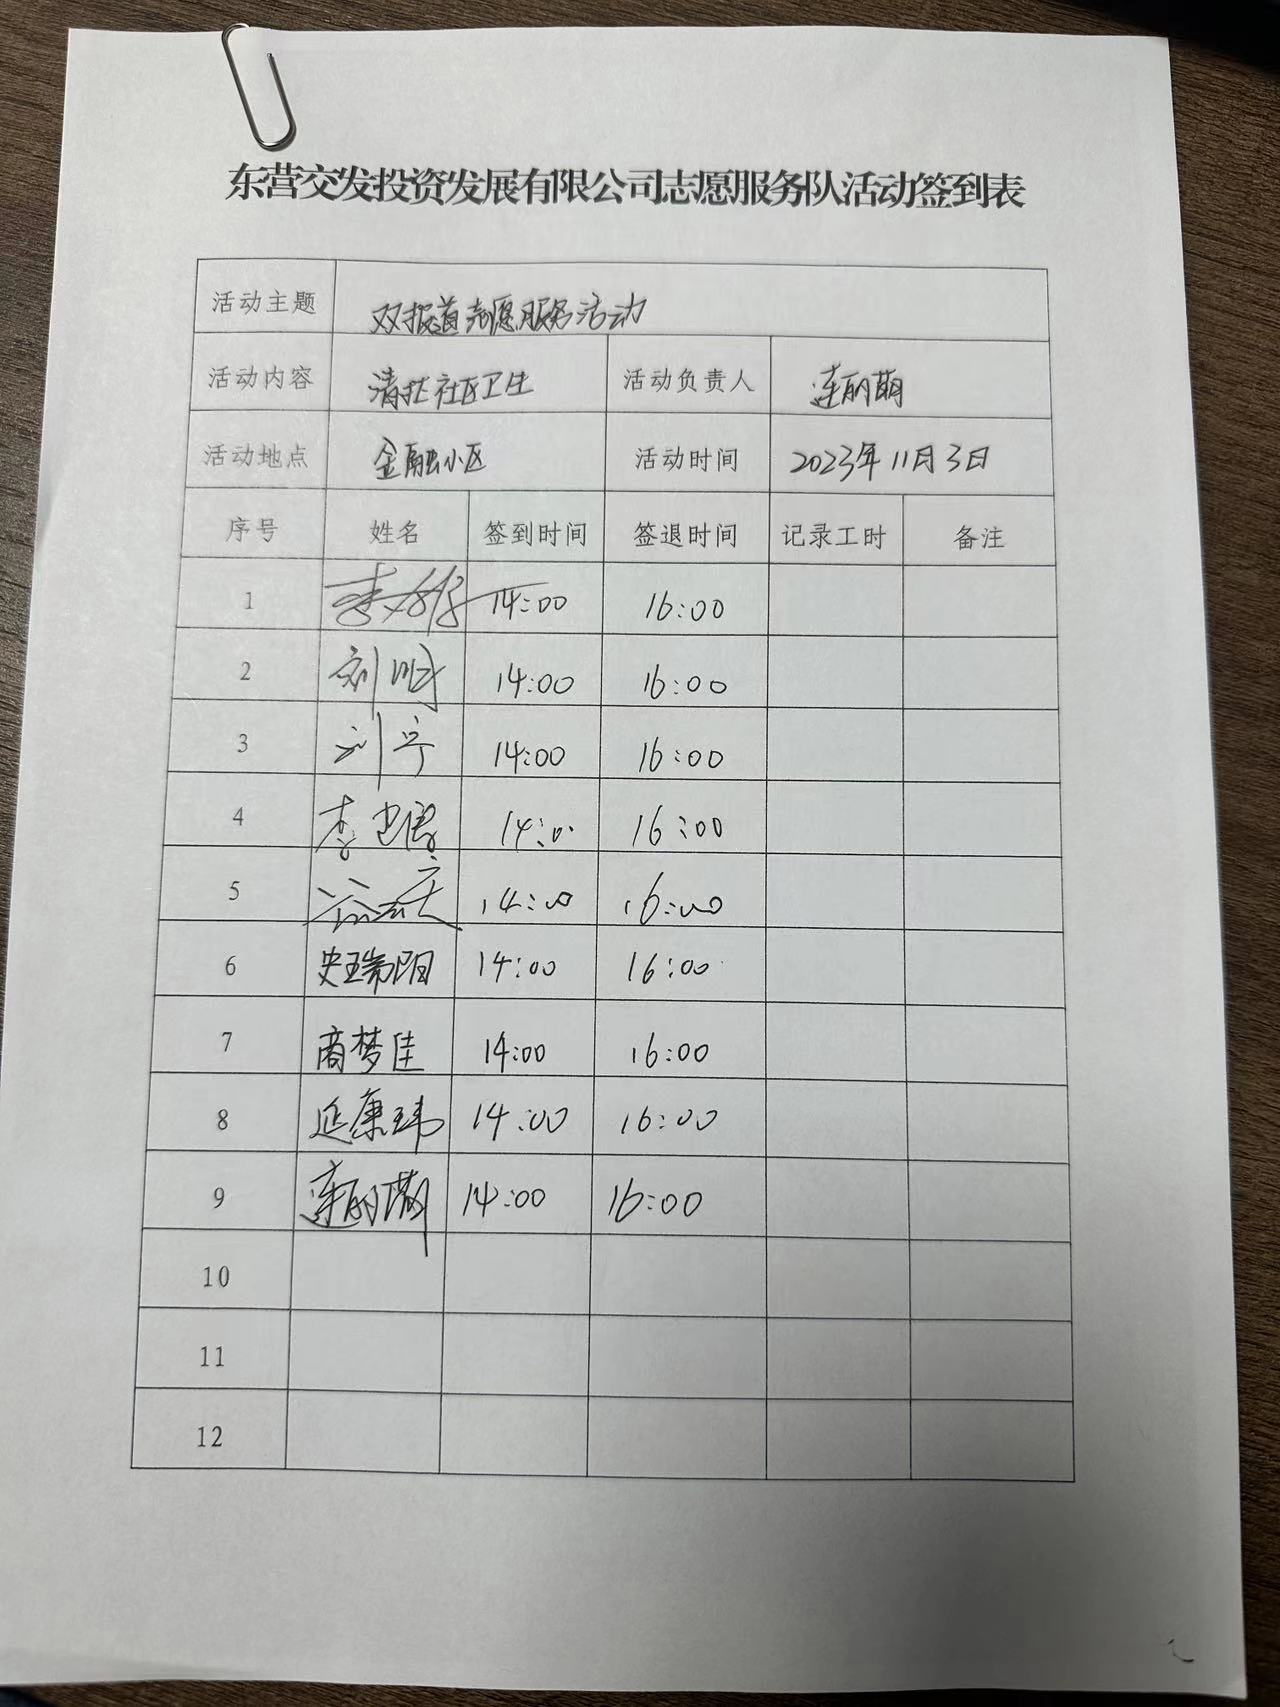 东营交发投资发展有限公司志愿服务队活动签到表
活动主题 双报道志愿服务活动
活动内容 清扫社区卫生 活动负责人 连丽萌
活动地点 金融小区 活动时间 2023年11月3日
序号 姓名 签到时间 签退时间 记录工时 备注
1 14:00 16:00
2 刘明 14:00 16:00
3 刘宁 14:00 16:00
4 李 14:00 16:00
5 14:00 16:00
6 史瑞阳 14:00 16:00
7 商梦佳 14:00 16:00
8 延康玮 14:00 16:00
9 连丽萌 14:00 16:00
10
11
12